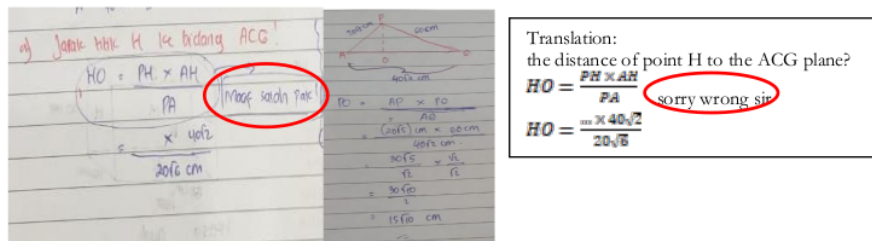 a) Jarak titik H ke bidang ACG!
HO = PH × AH
PA
Maaf salah pak!
= × 40√2
20√6 cm
P
60cm
A
O
40√2 cm
PO = AP × PQ
AQ
= (20√5) cm × 60cm
40√2 cm
= 30√5 × √2
√2 √2
= 30√10
2
= 15√10 cm
Translation:
the distance of point H to the ACG plane?
HO = PH × AH
PA
sorry wrong sir
HO = ... × 40√2
20√6